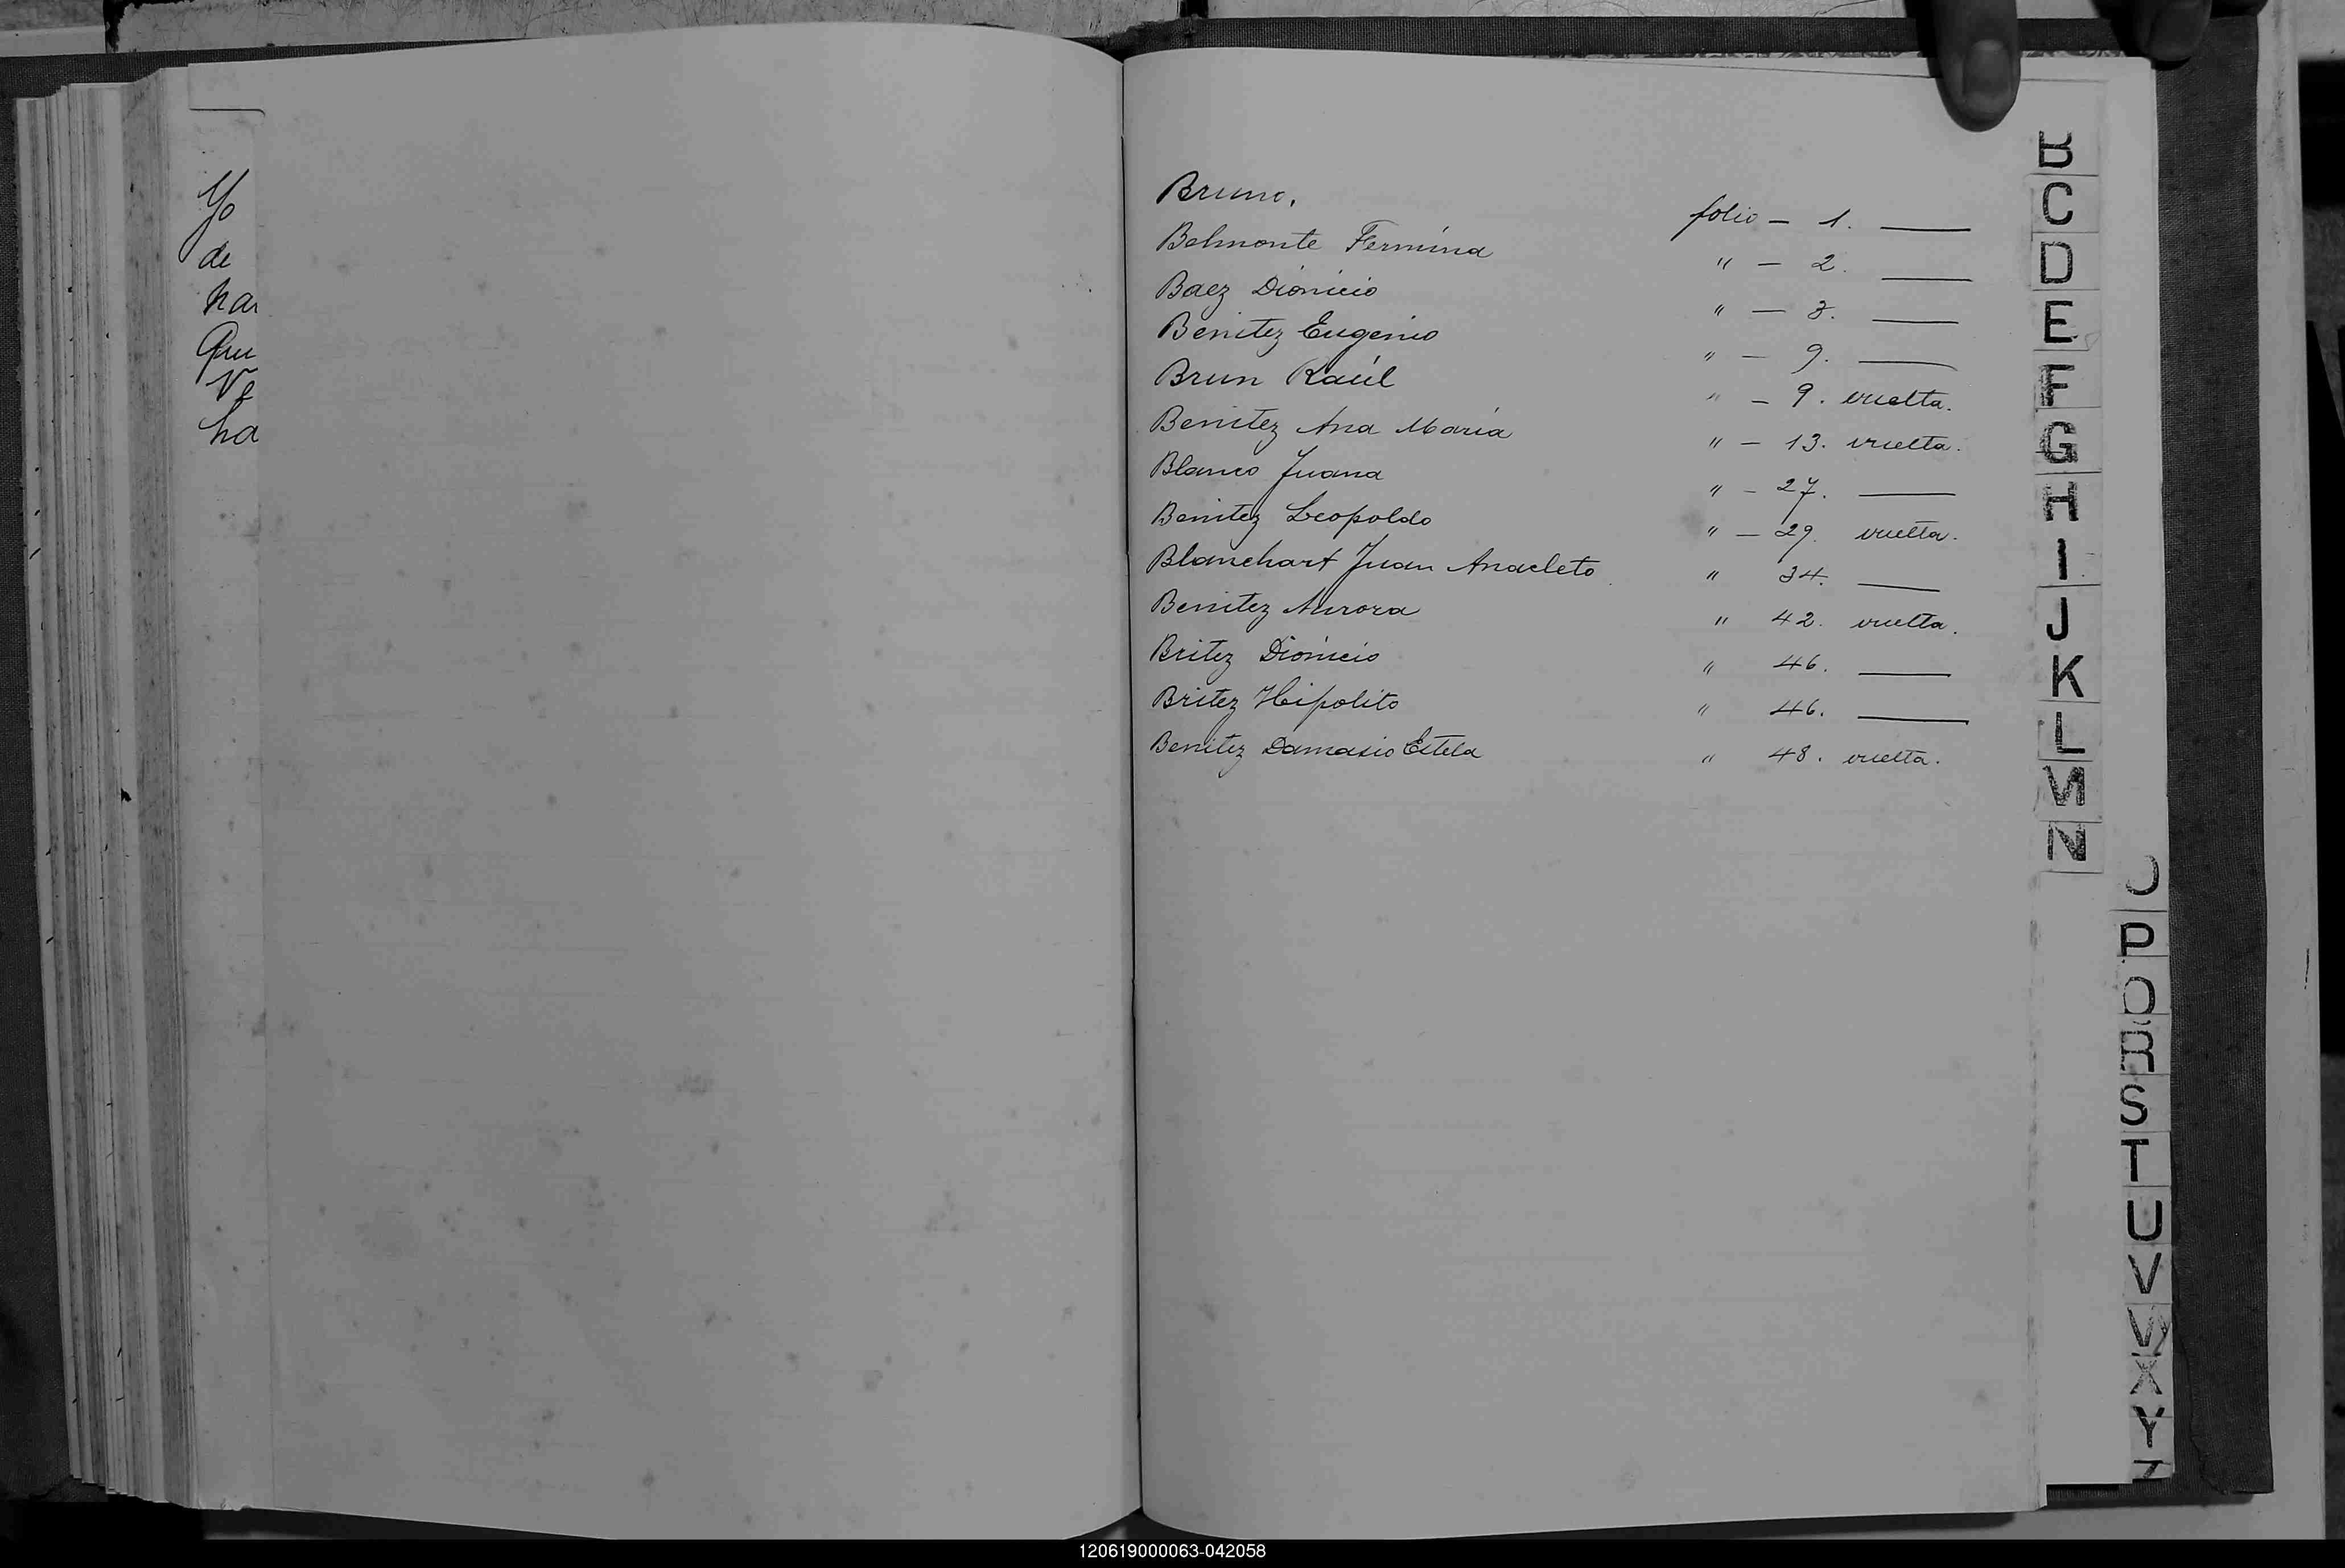 Yo
de
Bruno. folio — 1. ——
Belmonte Fermína " — 2. ——
Baez Dionicio " — 3. ——
Benitez Eugenio " — 9. ——
Brun Raúl " — 9. vuelta.
Benitez Ana María " — 13. vuelta.
Blanco Juana " — 27. ——
Benitez Leopoldo " — 29. vuelta.
Blanchart Juan Anacleto " 34. ——
Benitez Aurora " 42. vuelta.
Britez Dionicio " 46. ——
Britez Hipolito " 46. ——
Benitez Damasio Estela " 48. vuelta.
B
C
D
E
F
G
H
I
J
K
L
M
N
O
P
Q
R
S
T
U
V
W
X
Y
Z
120619000063-042058